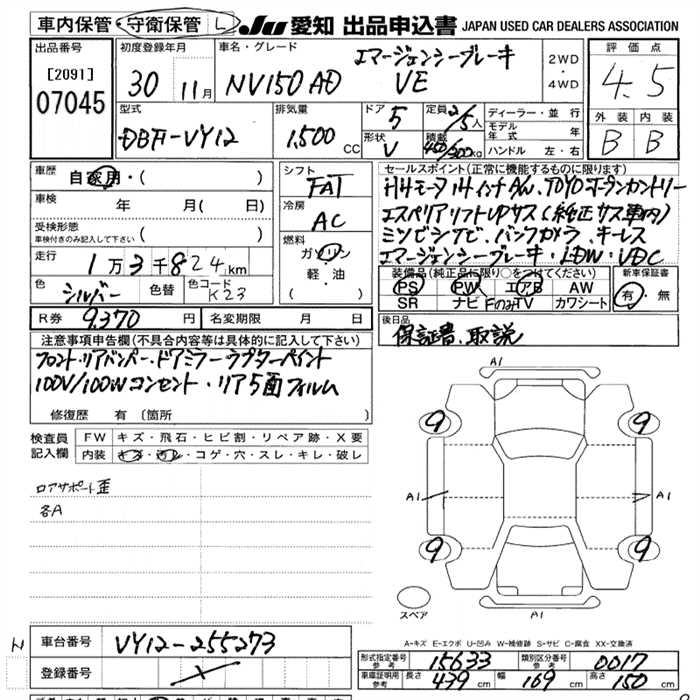 車内保管・守衛保管 L JU 愛知 出品申込書 JAPAN USED CAR DEALERS ASSOCIATION
出品番号 [2091] 07045
初度登録年月 30 11月
車名・グレード NV150AD エマージェンシーブレーキ VE
2WD・4WD
評価点 4.5
外装 内装
B B
型式 DBF-VY12
排気量 1,500 CC
ドア 5 定員 2/5人
形状 V 積載 450/300kg
ディーラー・並行
モデル年式 年
ハンドル 左・右
車歴 自家用・( )
車検 年 月( )
受検形態 車検付きのみ記入して下さい ( )
走行 1万3千824km
色 シルバー 色替 色コード K23
R券 9,370 円 名変期限 月 日
シフト FAT
冷房 AC
燃料 ガソリン 軽・油
セールスポイント(正常に機能するものに限ります)
H4モーフ 14インチAW、TOYOオープンカントリー
エスペリアリフトUPサス(純正サス車内)
ミツビシナビ、バックカメラ、キーレス
エマージェンシーブレーキ・LDW・VDC
装備品(純正品に限り○をつけてください) 新車保証書
PS PW エアB AW 有・無
SR ナビ FのみTV カワシート
後日品
保証書、取説
注意事項申告欄(不具合内容等は具体的に記入して下さい)
フロント・リアバンパー・ドアミラーラプターペイント
100V/100Wコンセント・リア5面フィルム
修復歴 有 (箇所 )
検査員記入欄 FW キズ・飛石・ヒビ割・リペア跡・X要
内装 キズ・汚レ・コゲ・穴・スレ・キレ・破レ
コアサポート歪
各A
A1
9 9
A1 A1
9 9
スペア
A1
A-キズ E-エクボ U-凹み W-補修跡 S-サビ C-腐食 XX-交換済
車台番号 VY12-255273
登録番号
形式指定番号 参考 15633 類別区分番号 参考 0017
車庫証明用 参考 長さ 439cm 幅 169cm 高さ 150cm